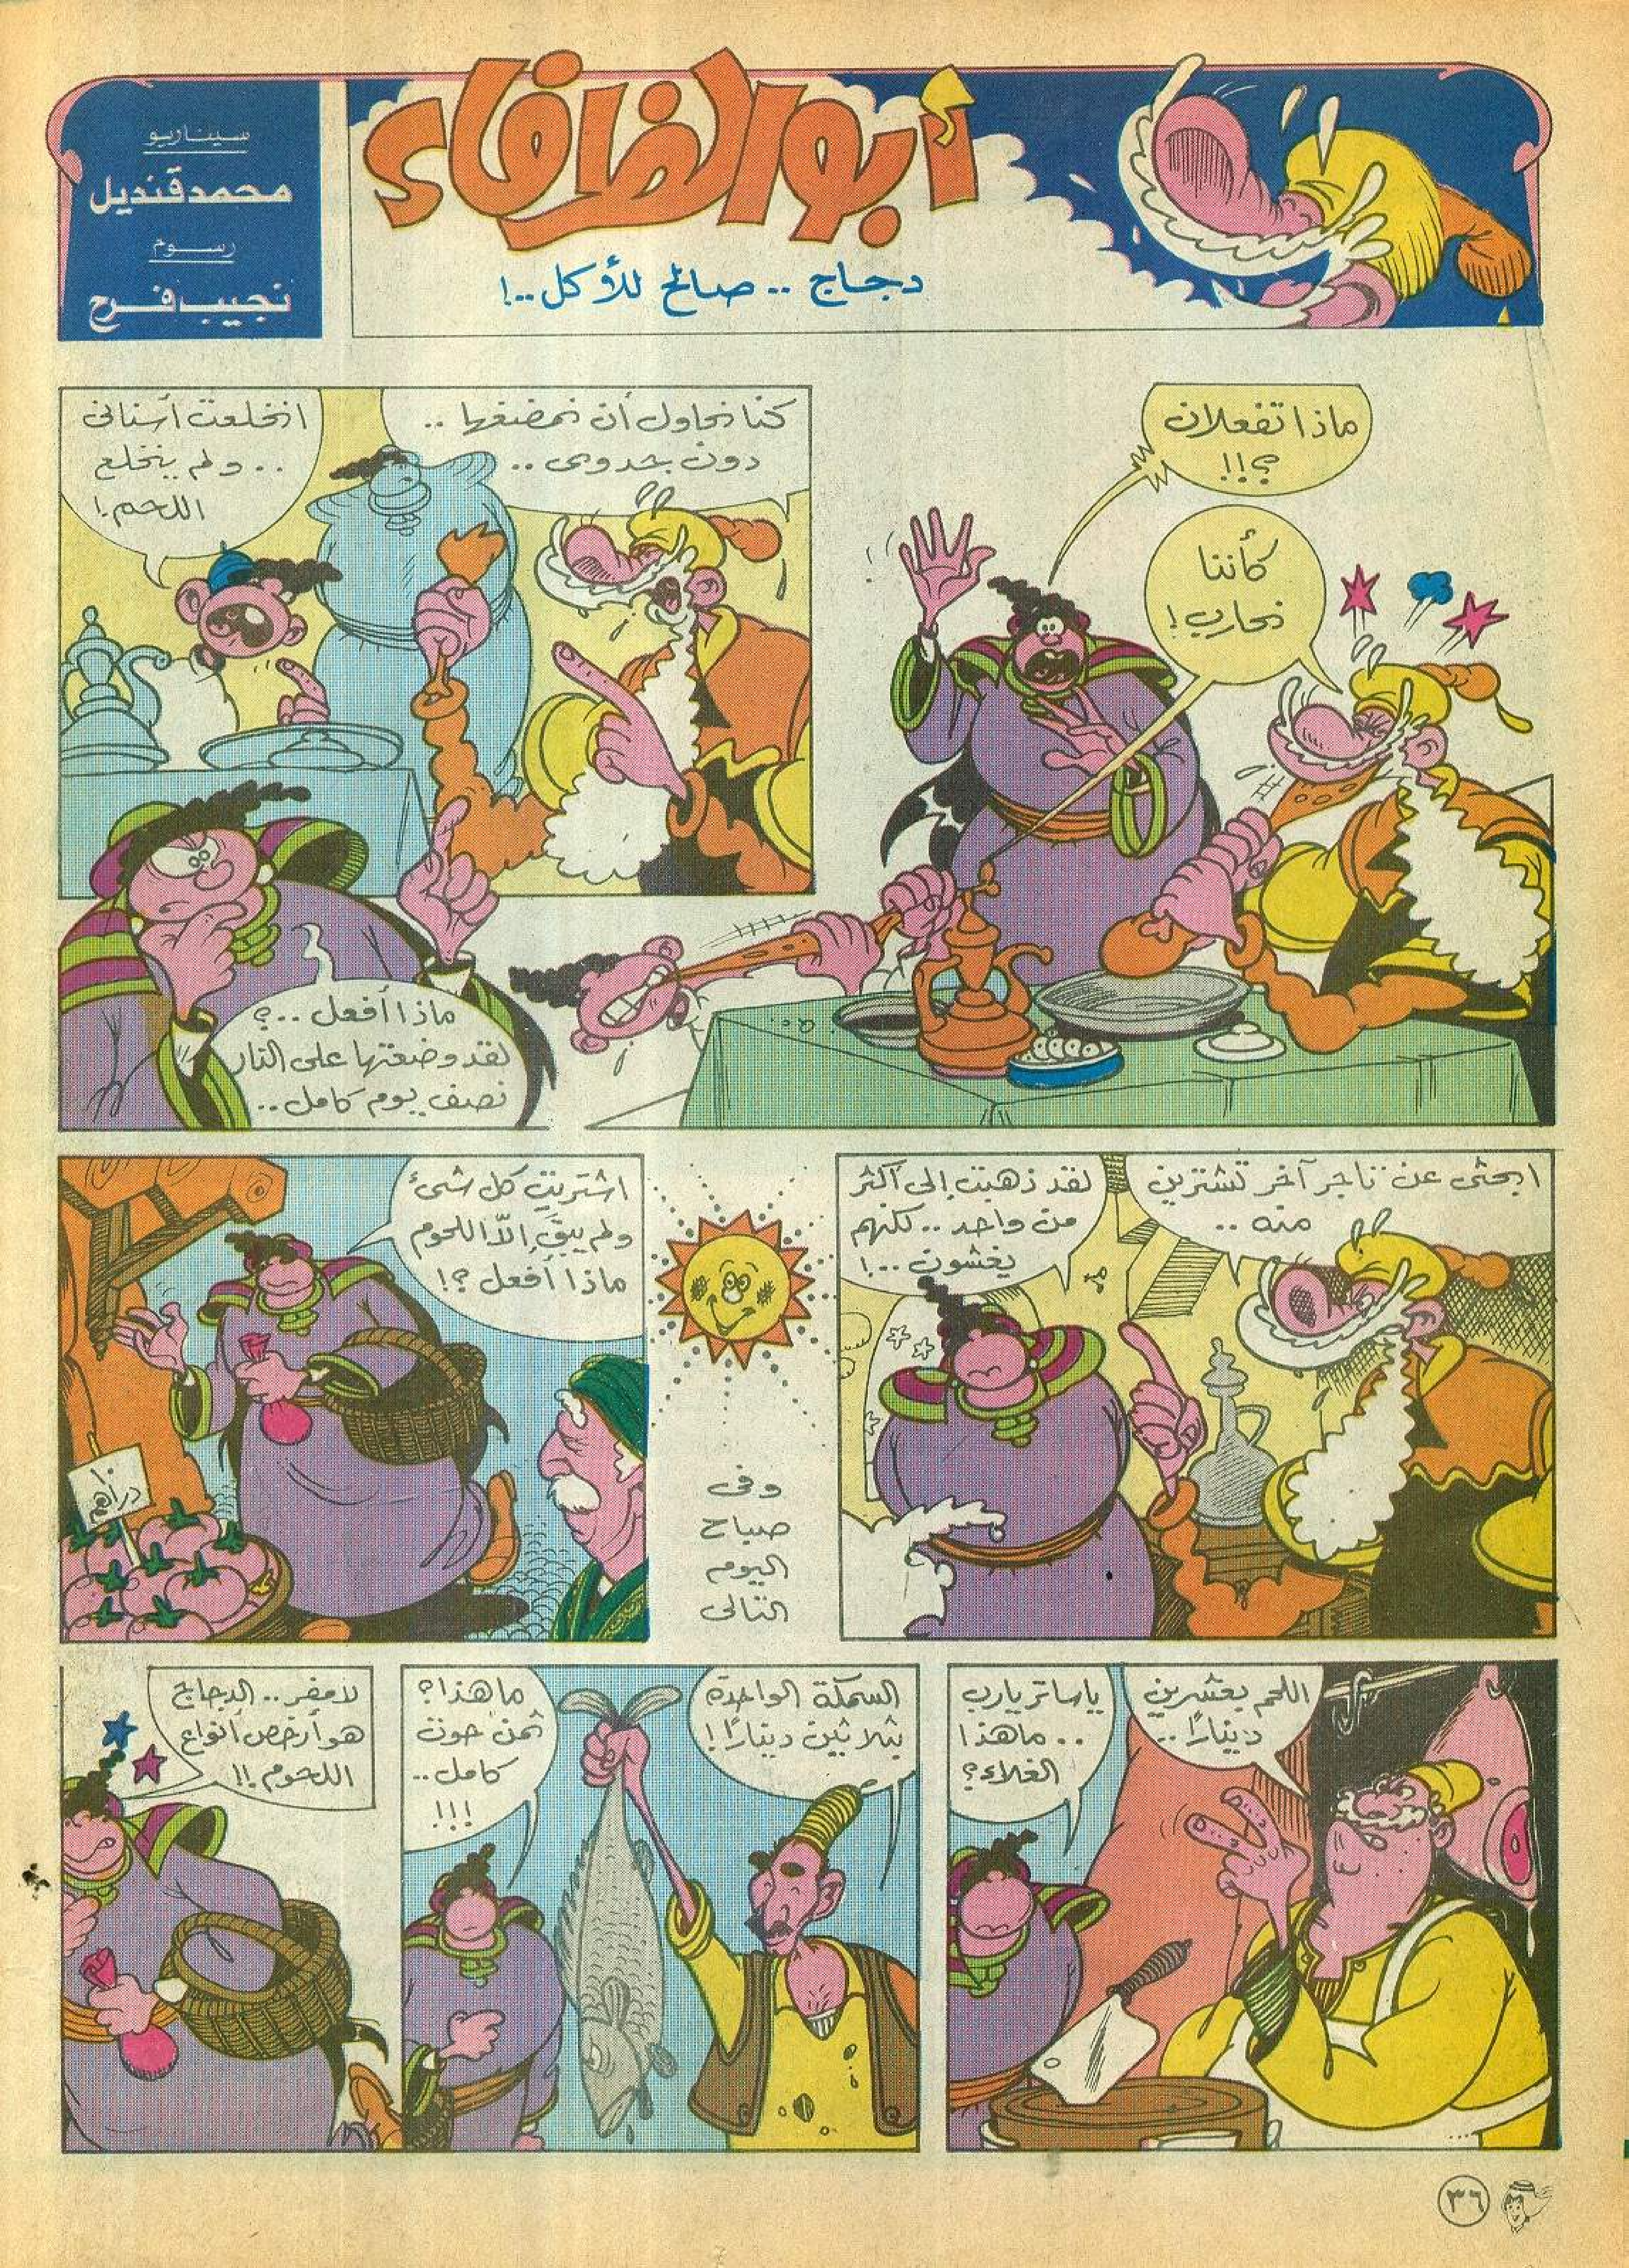 أبو الظرفاء
دجاج .. صالح للأكل ..!
سيناريو
محمد قنديل
رسوم
نجيب فرح
ماذا تفعلان
؟!!
كأننا
نحارب!
كنا نحاول أن نمضغها ..
دون جدوى ..
انخلعت أسنانى
.. ولم ينخلع
اللحم!
ماذا أفعل ..؟
لقد وضعتها على النار
نصف يوم كامل ..
ابحثى عن تاجر آخر تشترين
منه ..
لقد ذهبت إلى أكثر
من واحد .. لكنهم
يغشون ..!
وفى
صباح
اليوم
التالى
اشتريت كل شىء
ولم يبقَ إلاّ اللحوم
ماذا أفعل ؟!
دراهم
اللحم بعشرين
دينارًا ..
ياساتر يارب
.. ماهذا
الغلاء؟
السمكة الواحدة
بثلاثين دينارًا!
ما هذا؟
ثمن حوت
كامل ..
!!!
لامفر .. الدجاج
هو أرخص أنواع
اللحوم !!
٣٦